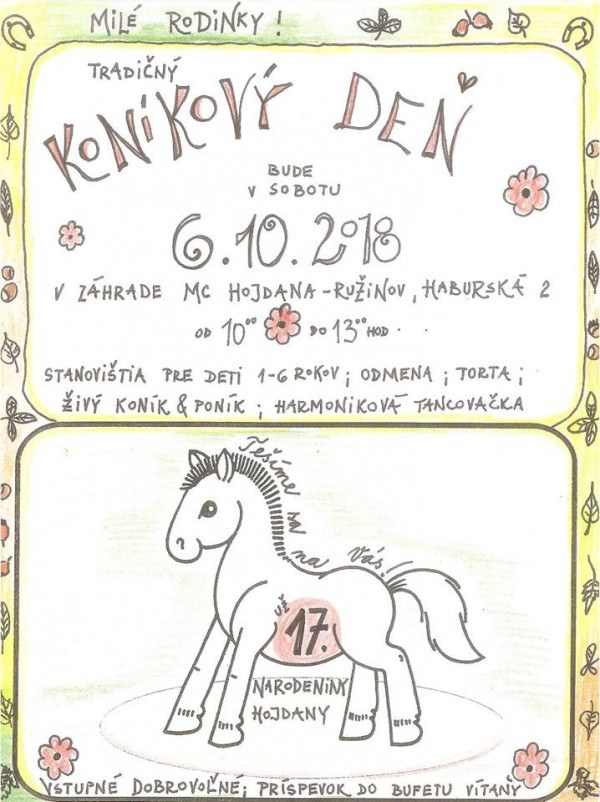 MILÉ RODINKY!
TRADIČNÝ
KONÍKOVÝ DEŇ
BUDE
V SOBOTU
6.10.2018
V ZÁHRADE MC HOJDANA-RUŽINOV, HABURSKÁ 2
OD 10°° DO 13°° HOD.
STANOVIŠTIA PRE DETI 1-6 ROKOV; ODMENA; TORTA;
ŽIVÝ KONÍK & PONÍK; HARMONIKOVÁ TANCOVAČKA
Tešíme sa na Vás!
UŽ
17.
NARODENINY
HOJDANY
VSTUPNÉ DOBROVOĽNÉ; PRÍSPEVOK DO BUFETU VÍTANÝ